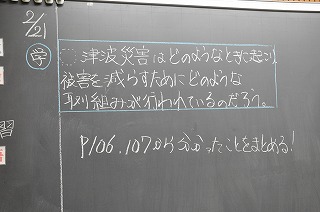 2/21
学
津波災害はどのようなときに起こり、
被害を減らすためにどのような
取り組みが行われているのだろう。
P106.107から分かったことをまとめる!
習